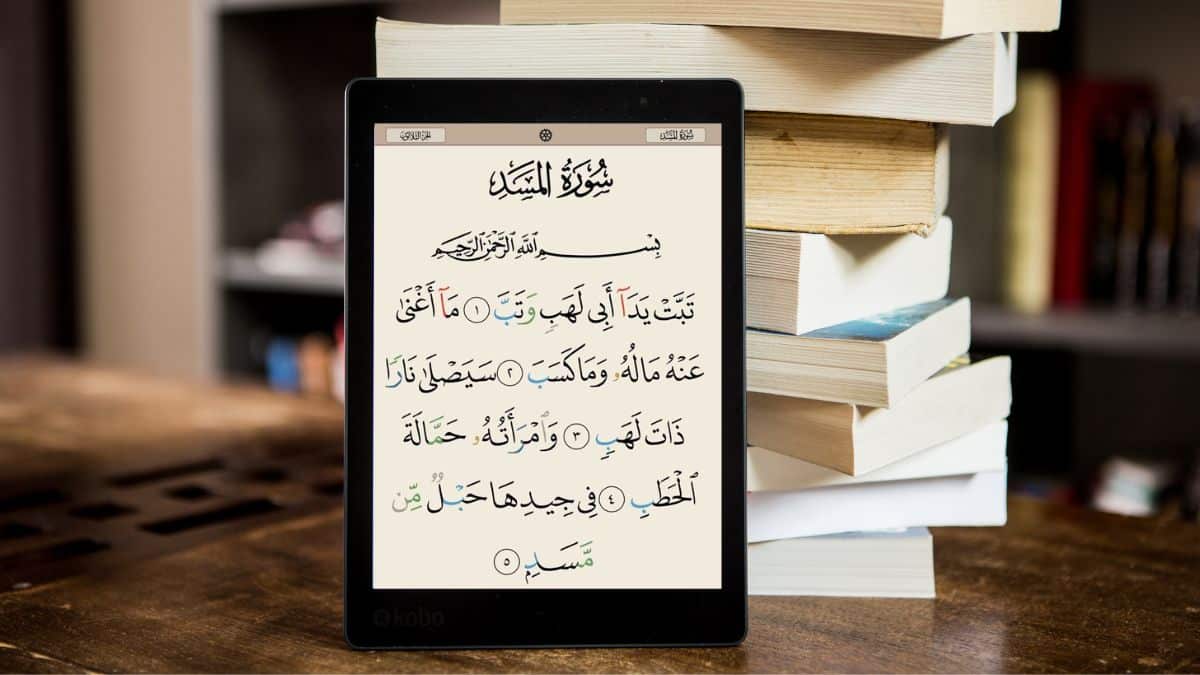 سُورَةُ المَسَدِ
الجزء الثلاثون
سُورَةُ المَسَدِ
بِسْمِ ٱللَّهِ ٱلرَّحْمَٰنِ ٱلرَّحِيمِ
تَبَّتْ يَدَآ أَبِى لَهَبٍ وَتَبَّ ١ مَآ أَغْنَىٰ
عَنْهُ مَالُهُۥ وَمَا كَسَبَ ٢ سَيَصْلَىٰ نَارًا
ذَاتَ لَهَبٍ ٣ وَٱمْرَأَتُهُۥ حَمَّالَةَ
ٱلْحَطَبِ ٤ فِى جِيدِهَا حَبْلٌ مِّن
مَّسَدٍ ٥
kobo